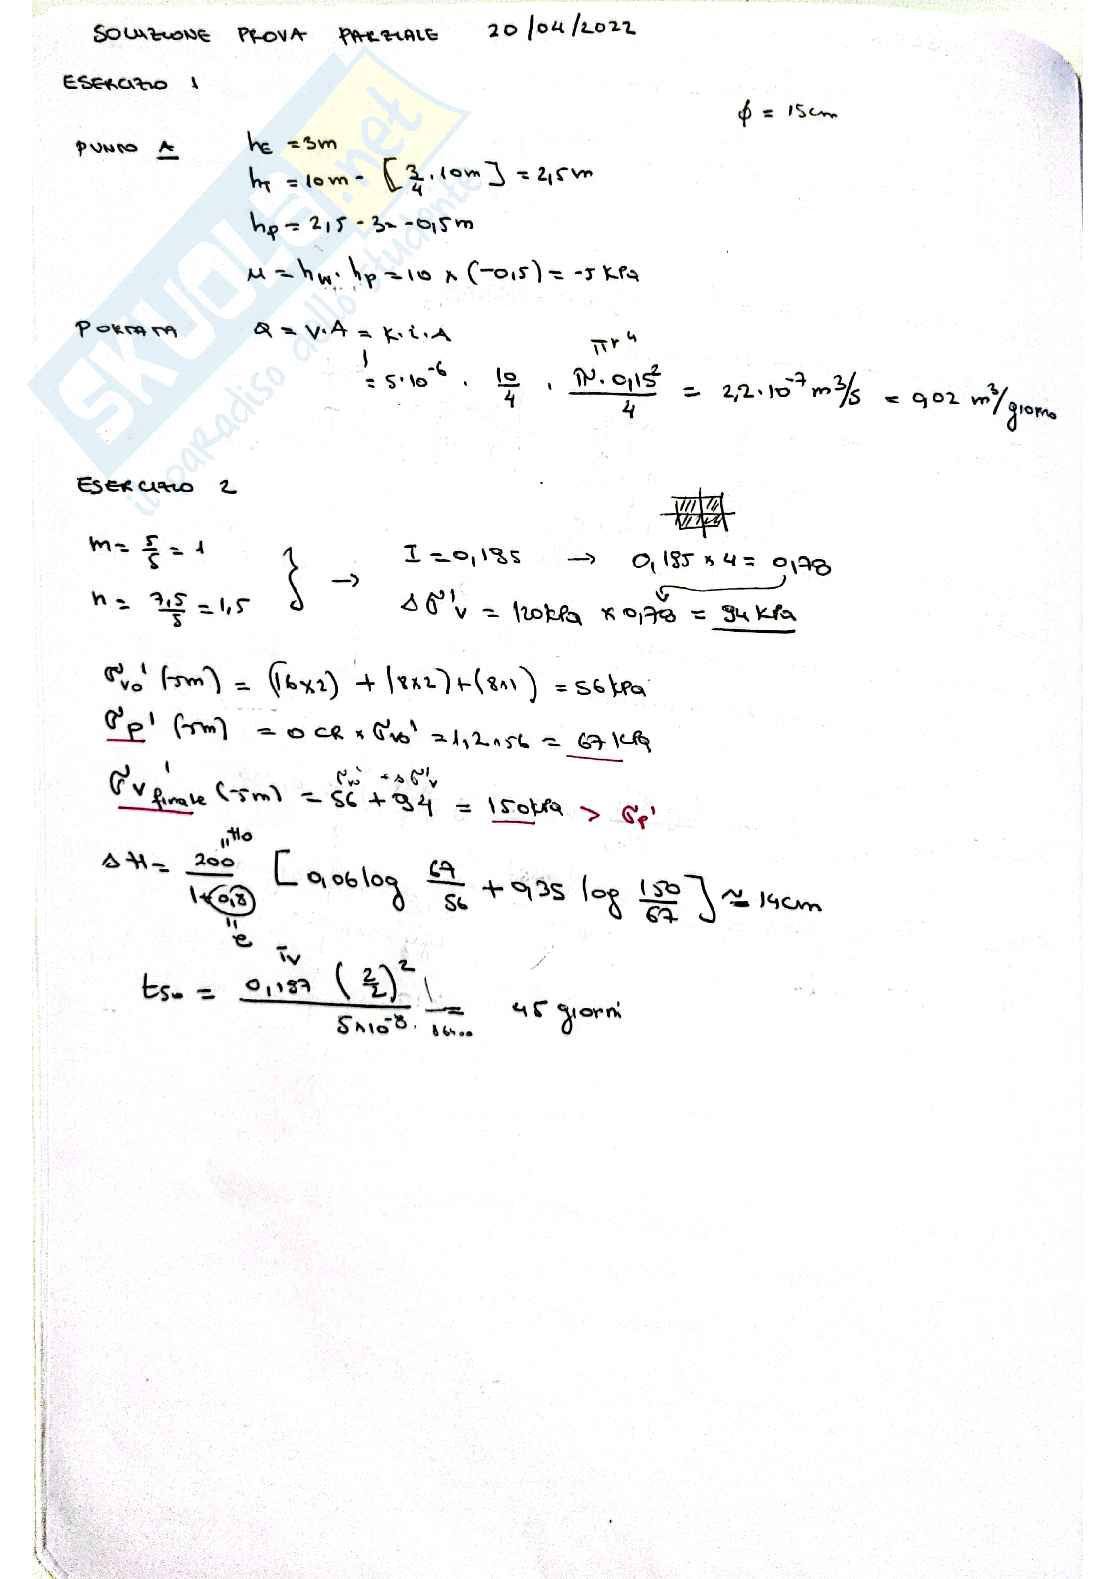 SOLUZIONE PROVA PARZIALE 20/04/2022
ESERCIZIO 1
φ = 15cm
PUNTO A hE = 3m
hT = 10m - [3/4 · 10m] = 2,5m
hp = 2,5 - 3 = -0,5m
μ = hw · hp = 10 × (-0,5) = -5 kPa
PORTATA Q = V·A = K·i·A
πr⁴
= 5·10⁻⁶ · 10/4 · π·0,15²/4 = 2,2·10⁻⁷ m³/s = 0,02 m³/giorno
ESERCIZIO 2
m = 5/5 = 1
n = 7,5/5 = 1,5
} → I = 0,185 → 0,185 × 4 = 0,78
Δσ'v = 120kPa × 0,78 = 94 kPa
σvo' (-5m) = (16×2) + (8×2) + (8×1) = 56 kPa
σp' (-5m) = OCR × σvo' = 1,2 × 56 = 67 kPa
σvo' + Δσ'v
σv' finale (-5m) = 56 + 94 = 150kPa > σp'
"Ho
ΔH = 200/1+0,8 [0,06 log 67/56 + 0,35 log 150/67] ≃ 14cm
"
e
Tv
t50 = 0,197 (2/2)² / 5×10⁻⁸ · 1/86400 = 45 giorni
SKUOLA.net
il paradiso dello studente